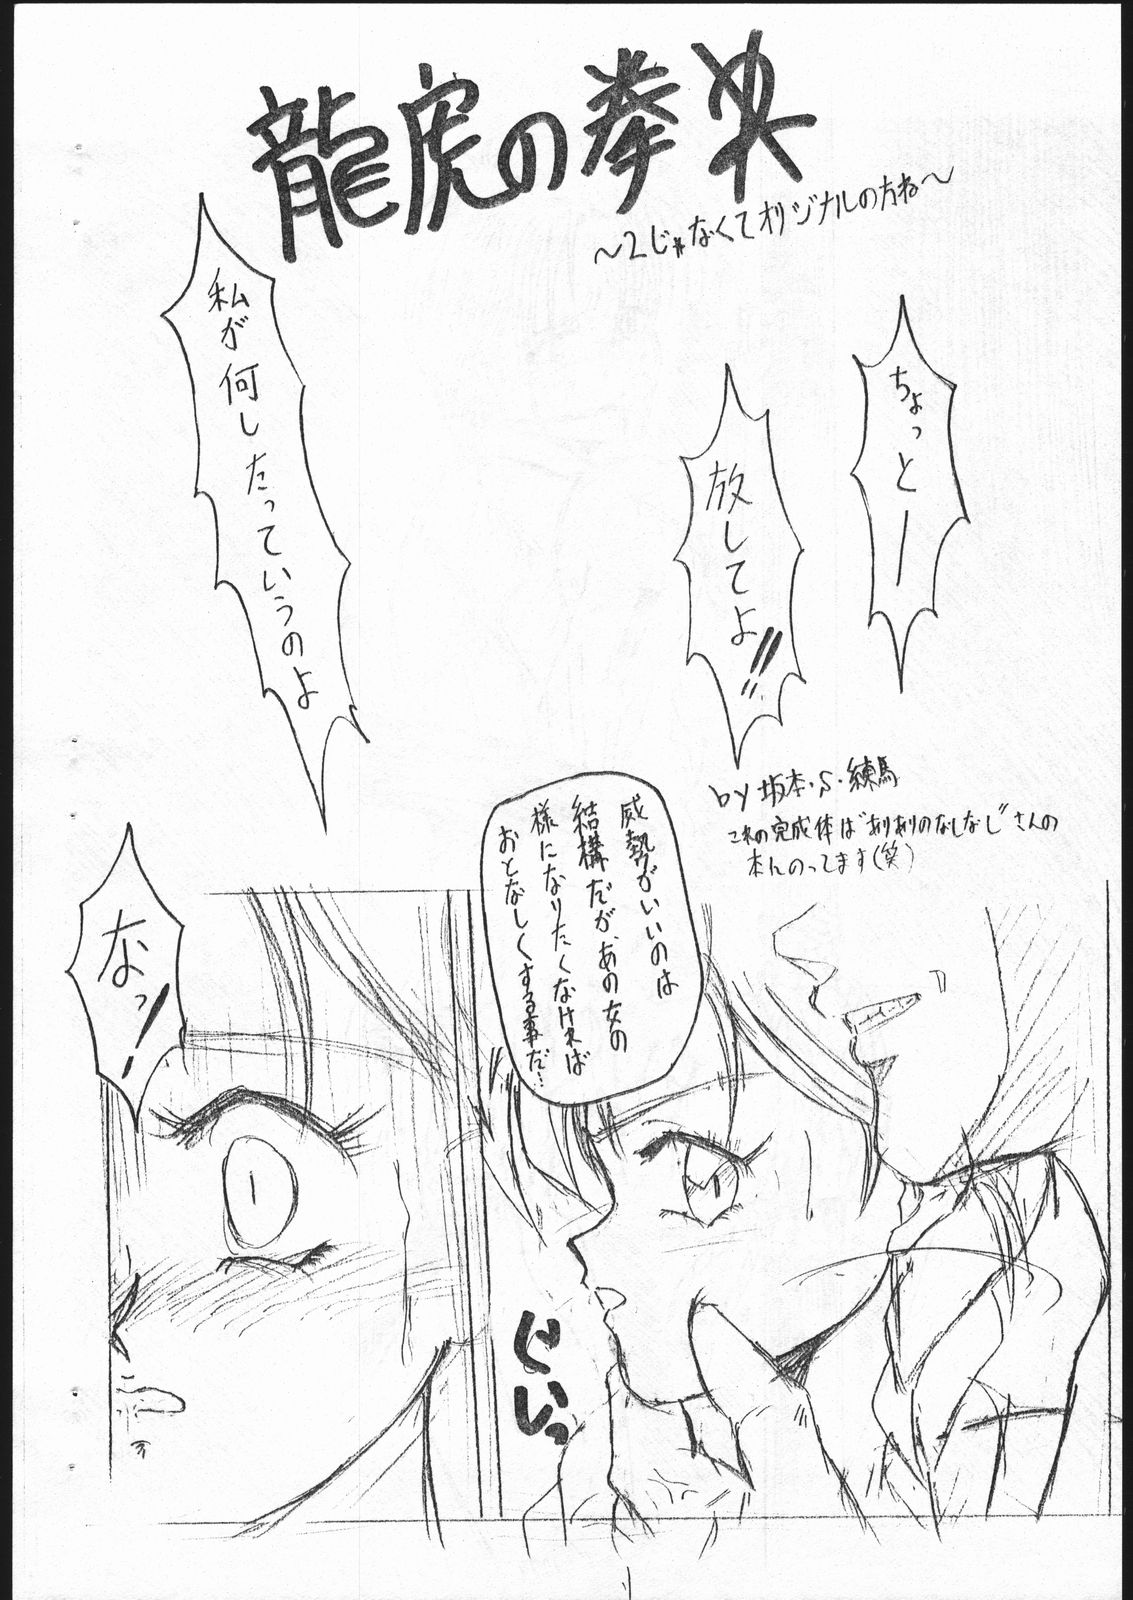 龍虎の拳
〜2じゃなくてオリジナルの方ね〜
ちょっとー
放してよ!!
私が何し
たっていうのよ
by 坂本・S・練馬
これの完成体は"ありありのなしなし"さんの
本んのってます(笑)
威勢がいいのは
結構だが、あの女の
様になりたくなければ
おとなしくする事だ…
なっ!
ぐいっ